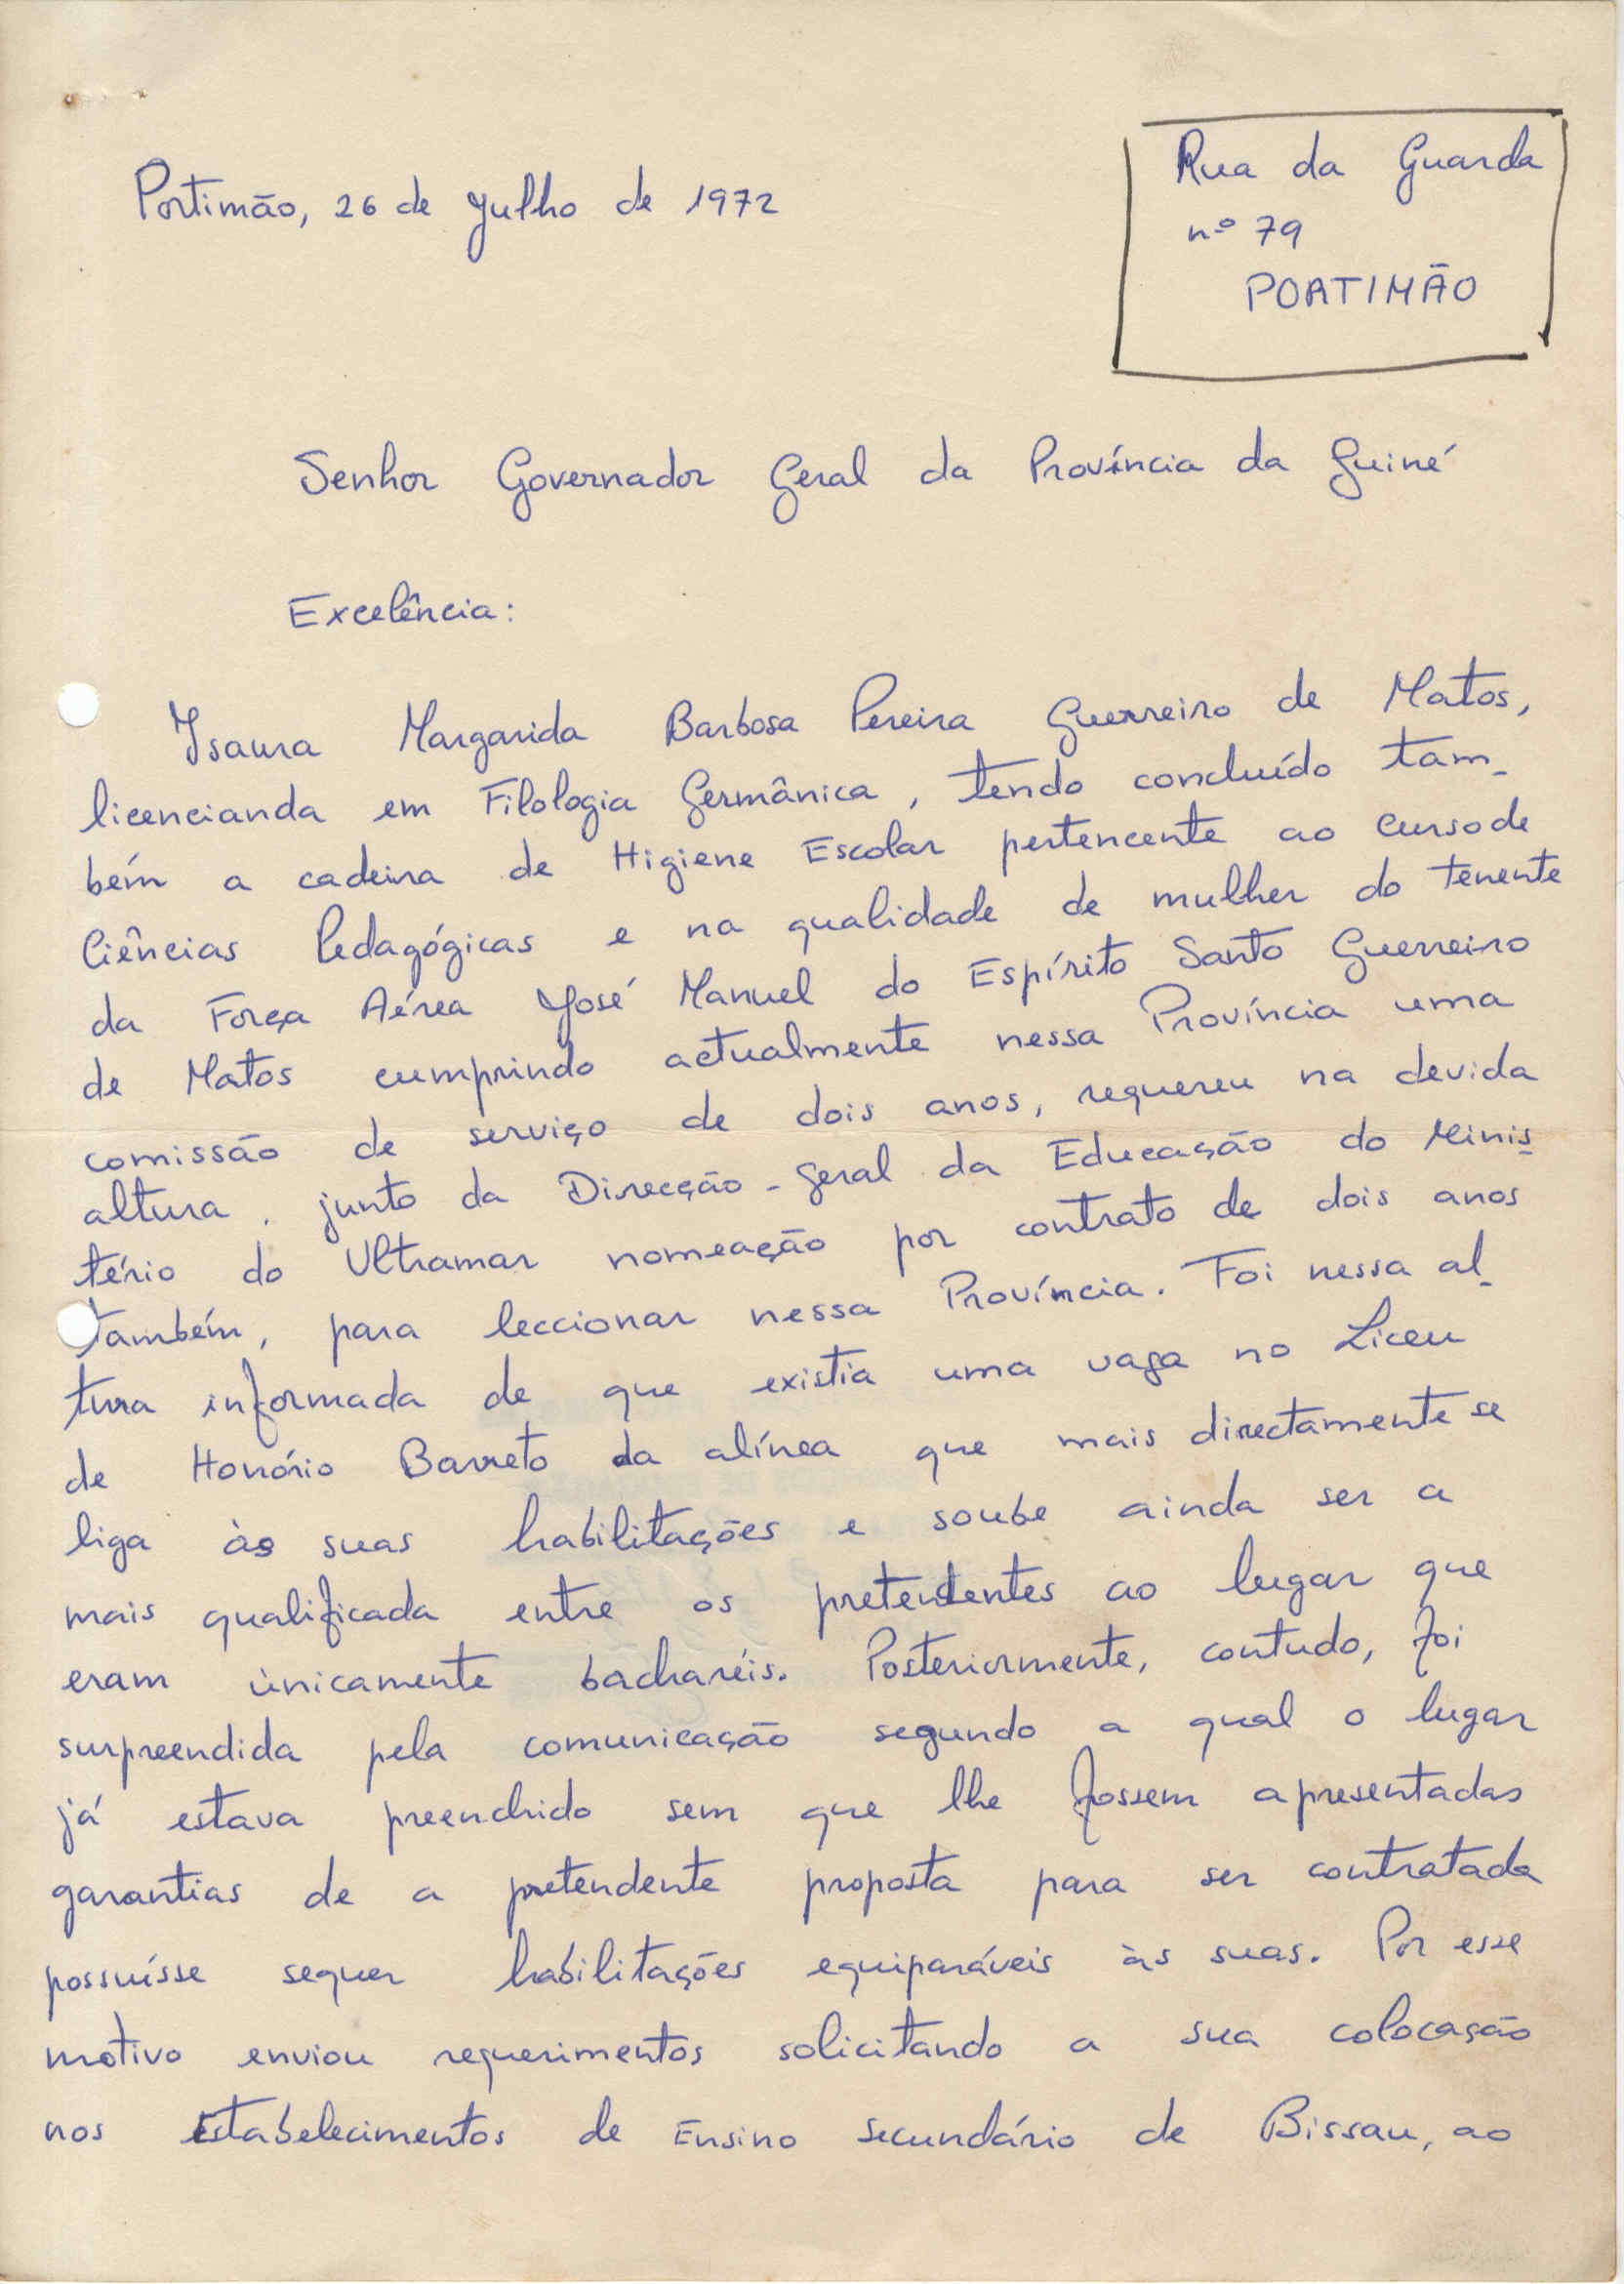 Portimão, 26 de Julho de 1972
Rua da Guarda
nº 79
PORTIMÃO
Senhor Governador Geral da Província da Guiné
Excelência:
Isaura Margarida Barbosa Pereira Guerreiro de Matos,
licencianda em Filologia Germânica, tendo concluído tam-
bém a cadeira de Higiene Escolar pertencente ao curso de
Ciências Pedagógicas e na qualidade de mulher do tenente
da Força Aérea José Manuel do Espírito Santo Guerreiro
de Matos cumprindo actualmente nessa Província uma
comissão de serviço de dois anos, requereu na devida
altura, junto da Direcção-Geral da Educação do Minis-
tério do Ultramar nomeação por contrato de dois anos
também, para leccionar nessa Província. Foi nessa al-
tura informada de que existia uma vaga no Liceu
de Honório Barreto da alínea que mais directamente se
liga às suas habilitações e soube ainda ser a
mais qualificada entre os pretendentes ao lugar que
eram ùnicamente bacharéis. Posteriormente, contudo, foi
surpreendida pela comunicação segundo a qual o lugar
já estava preenchido sem que lhe fossem apresentadas
garantias de a pretendente proposta para ser contratada
possuísse sequer habilitações equiparáveis às suas. Por esse
motivo enviou requerimentos solicitando a sua colocação
nos Estabelecimentos de Ensino secundário de Bissau, ao